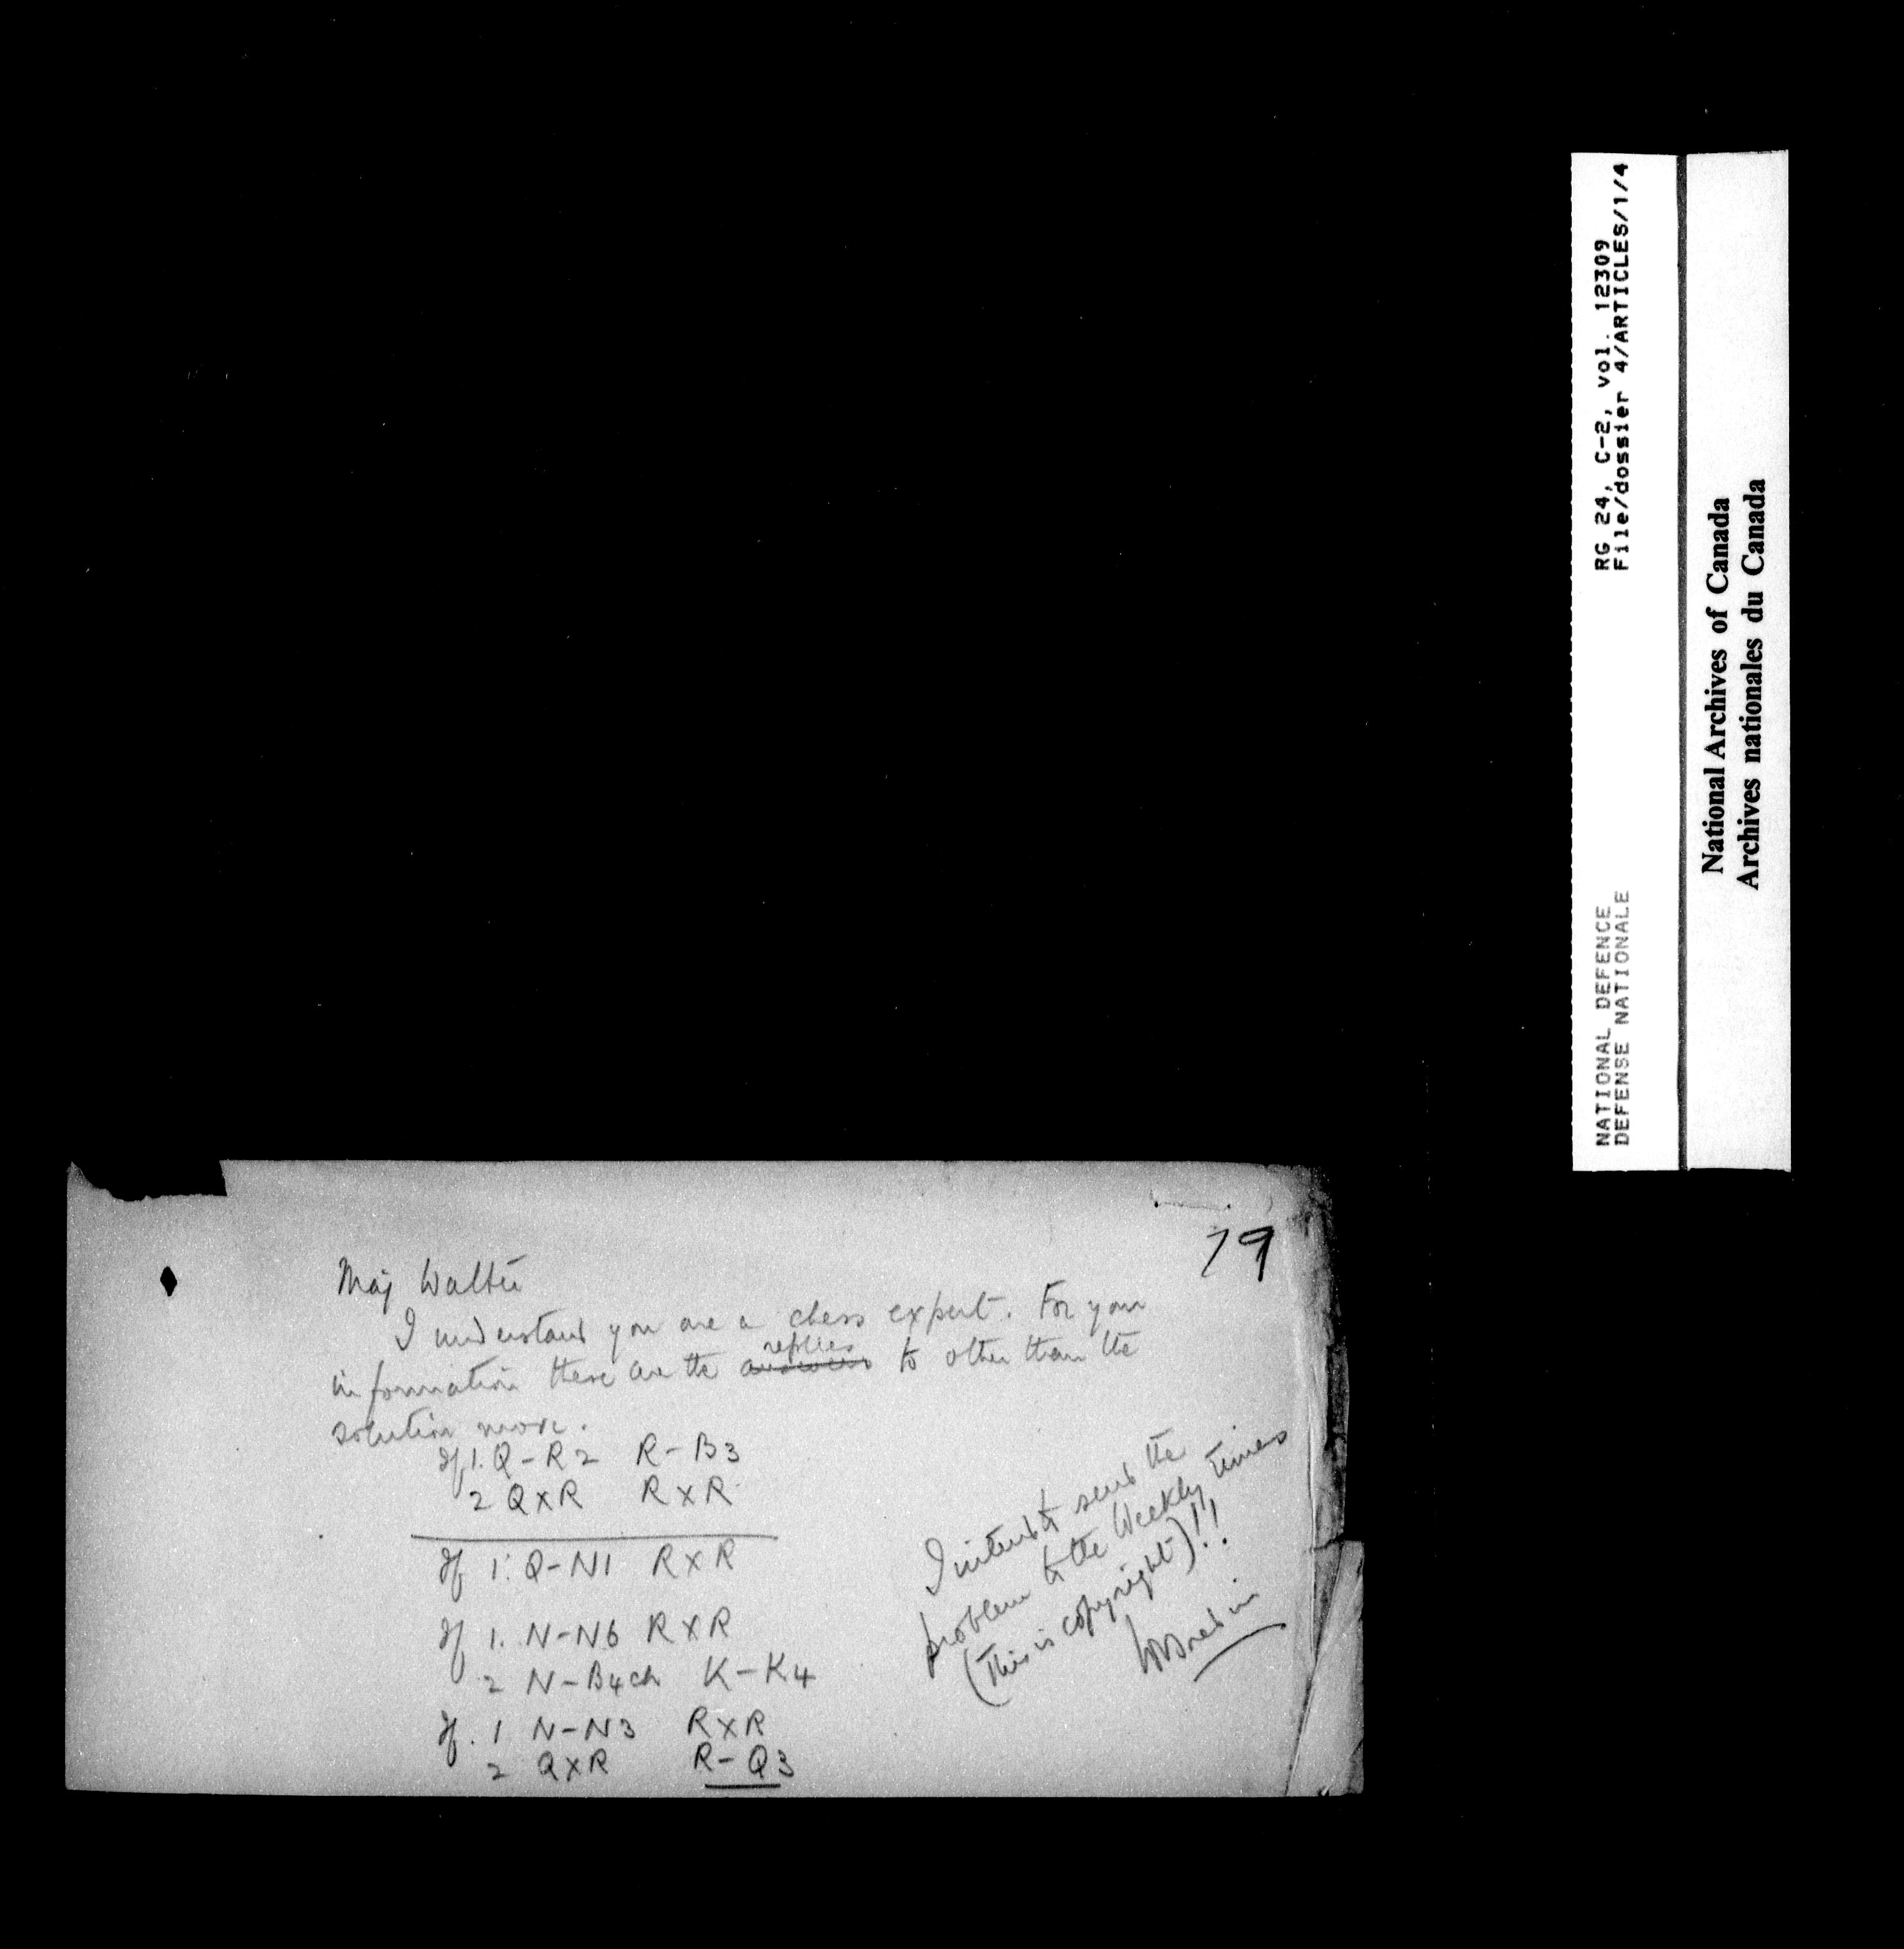 79
Maj Walter
I understand you are a chess expert. For your
replies
information these are the answers to other than the
solution move.
If 1. Q-R2 R-B3
2 QxR RxR
If 1. Q-N1 RxR
If 1. N-N6 RxR
2 N-B4ch K-K4
If. 1 N-N3 RxR
2 QxR R-Q3
I intend to send the
problem to the Weekly times
(This is copyright)!!
NATIONAL DEFENCE
DEFENSE NATIONALE
RG 24, C-2, vol. 12309
File/dossier 4/ARTICLES/1/4
National Archives of Canada
Archives nationales du Canada